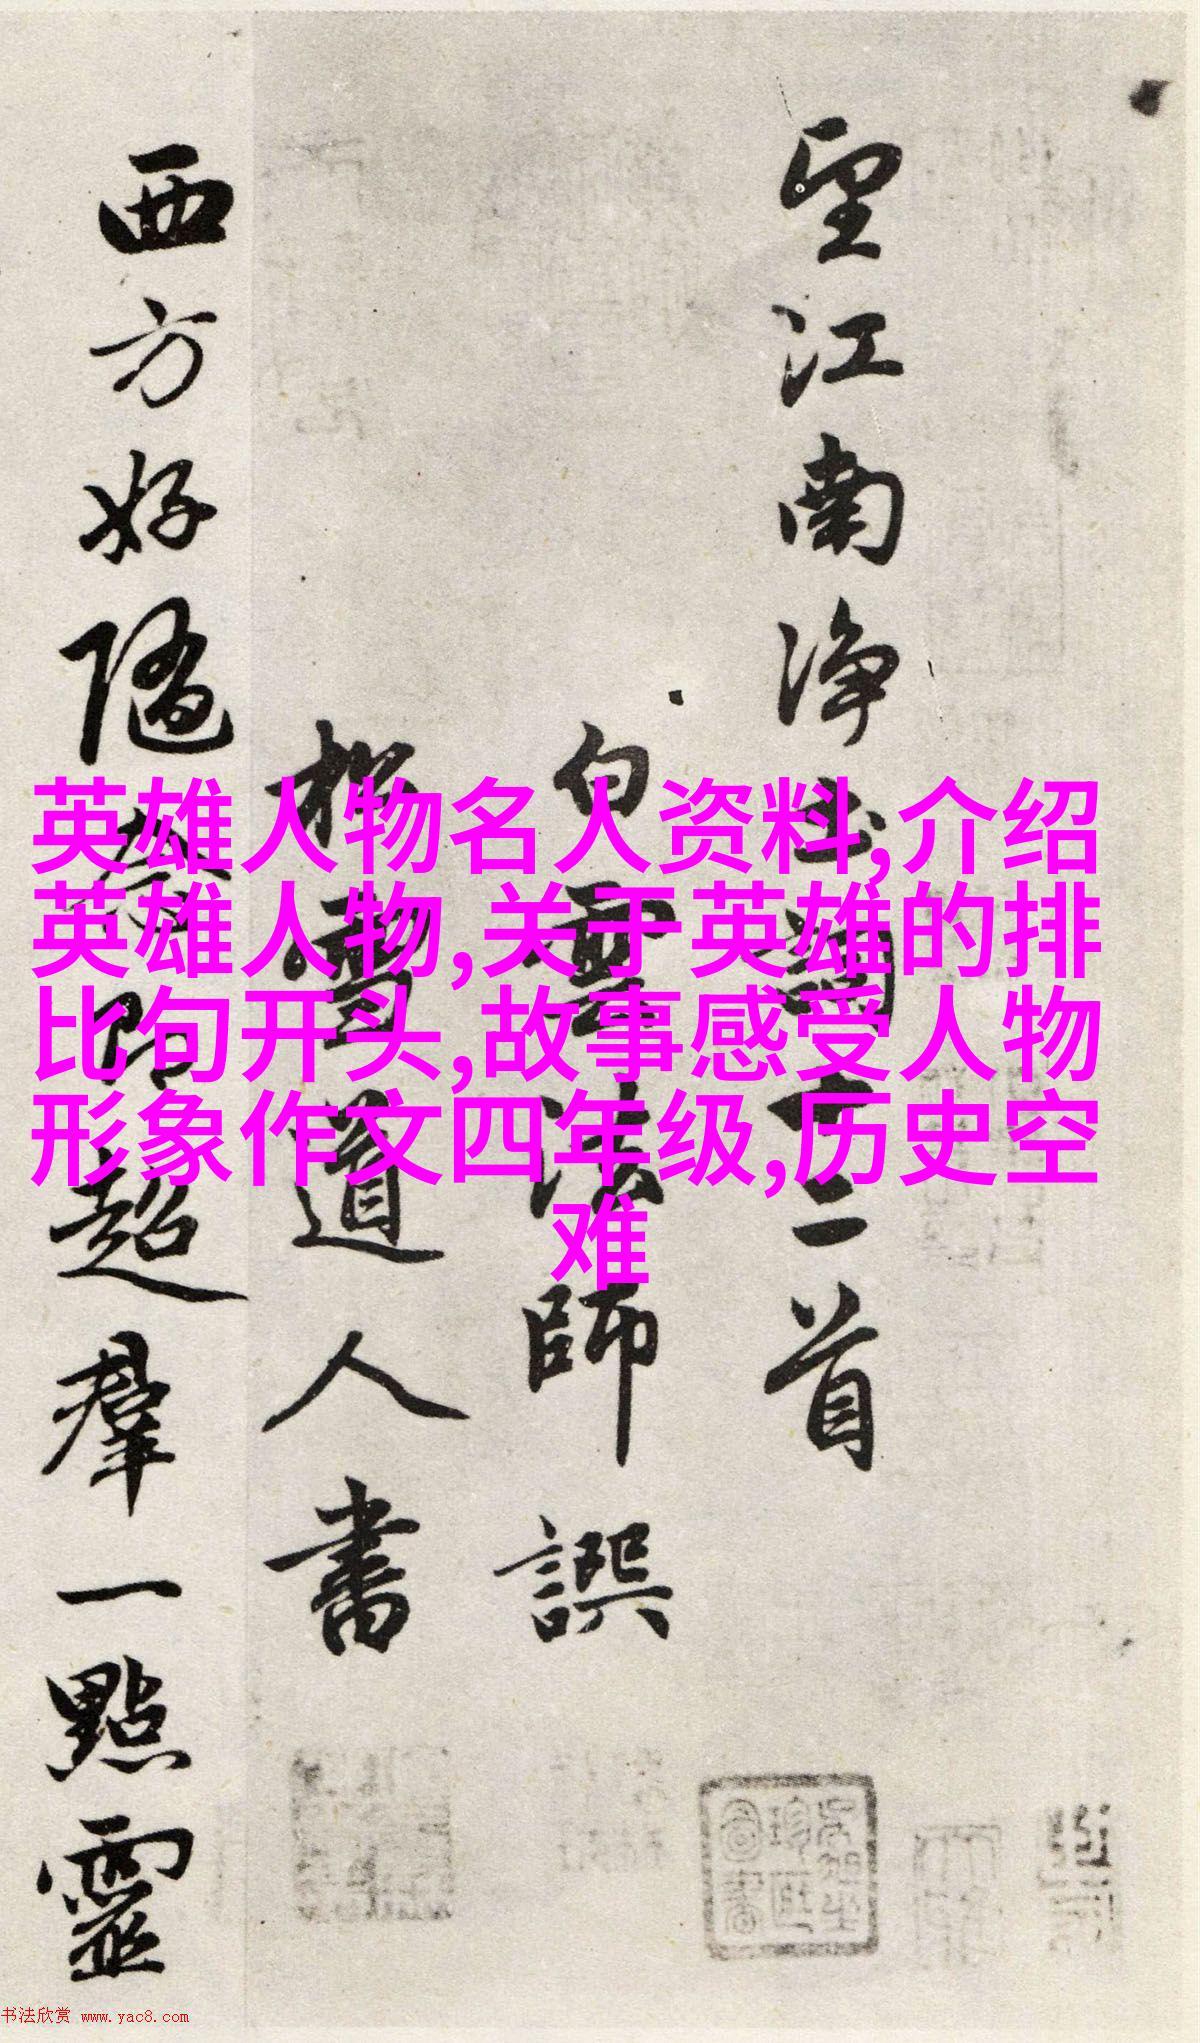 望江南净土词十二首
白雲法師譔
松雪道人書
西方好隨念即超羣一點靈
英雄人物名人资料,介绍
英雄人物,关于英雄的排
比句开头,故事感受人物
形象作文四年级,历史空
难
书法欣赏 www.yac8.com